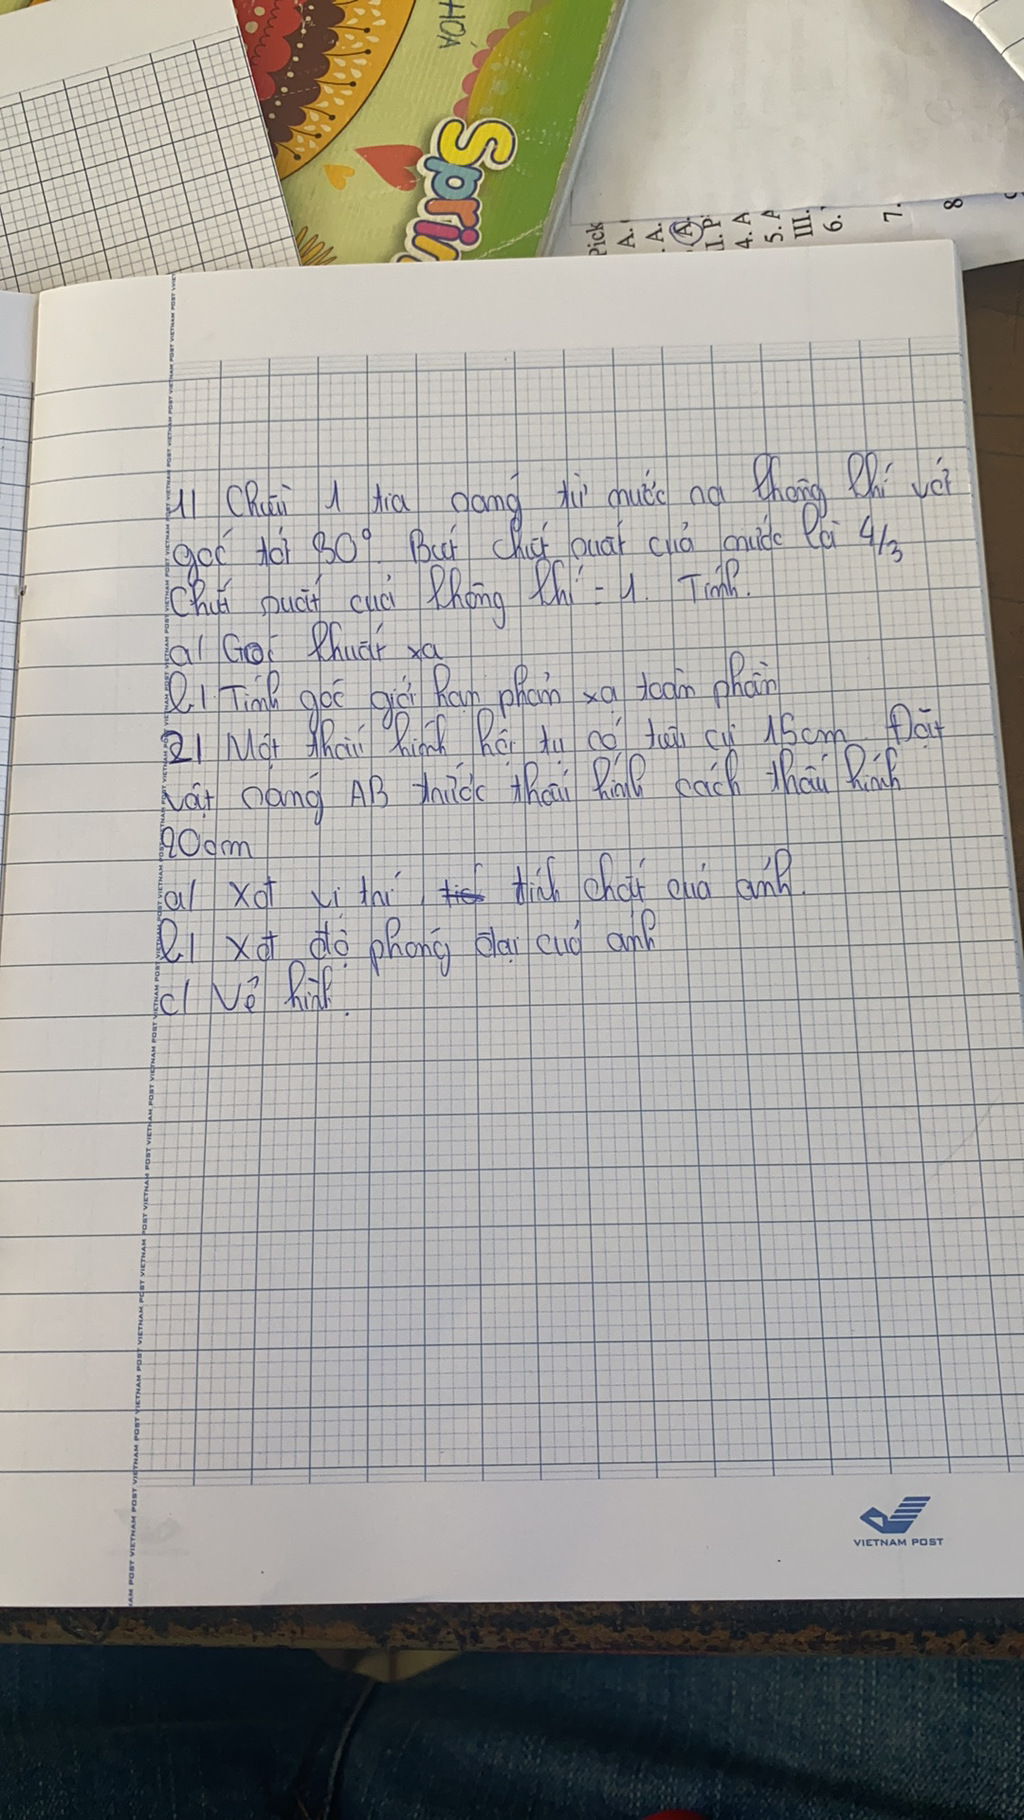 HOÁ
Sprin
Pick
A.
A.
A.
II. P
4. A
5. A
III.
6.
7.
8
1/ Chiếu 1 tia sáng từ nước ra không khí với
góc tới 30°. Biết chiết suất của nước là 4/3
Chiết suất của không khí = 1. Tính.
a/ Góc khúc xạ
b/ Tính góc giới hạn phản xạ toàn phần
2/ Một thấu kính hội tụ có tiêu cự 15cm. Đặt
vật sáng AB trước thấu kính cách thấu kính
20cm
a/ Xđ vị trí, tính chất của ảnh.
b/ Xđ độ phóng đại của ảnh
c/ Vẽ hình.
VIETNAM POST VIETNAM POST VIETNAM POST VIETNAM POST VIETNAM POST VIETNAM POST
VIETNAM POST